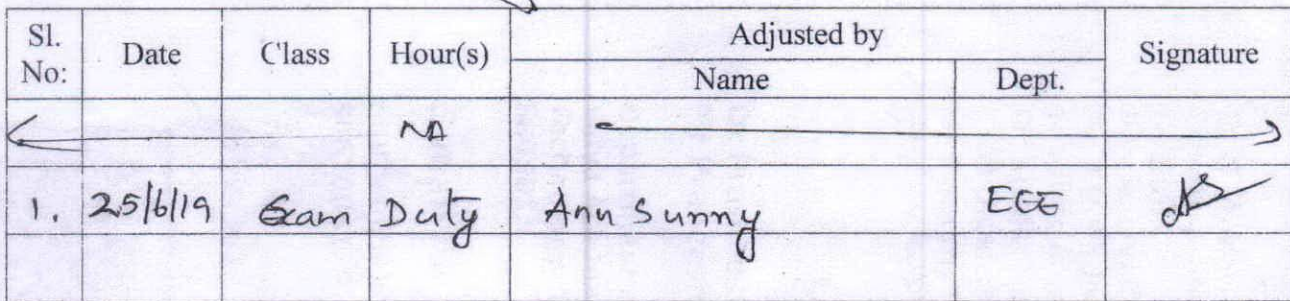 Sl. No: Date Class Hour(s) Adjusted by Name Dept. Signature
NA
1. 25/6/19 Exam Duty Ann Sunny EEE